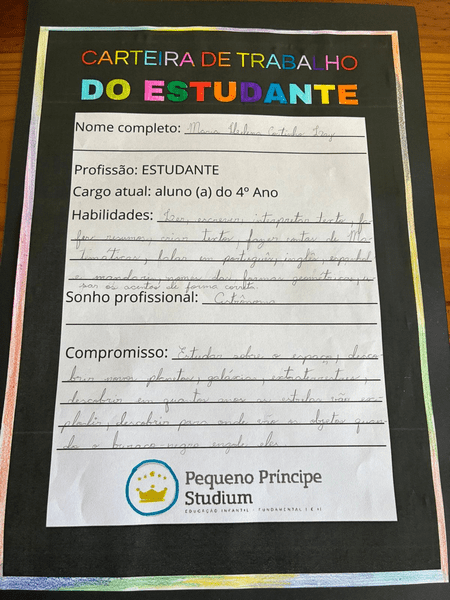 CARTEIRA DE TRABALHO
DO ESTUDANTE
Nome completo: Maria
Profissão: ESTUDANTE
Cargo atual: aluno (a) do 4º Ano
Habilidades: Ler, escrever, interpretar texto, fa
zer resumos, criar textos, fazer contas de Ma-
temáticas, falar em português, inglês, espanhol
e mandarim, nomes das formas geométricas, u
sar os acentos de forma correta.
Sonho profissional: Astrônoma
Compromisso: Estudar sobre o espaço, desco
brir novos planetas, galáxias, extraterrestres,
descobrir em quantos anos as estrelas vão ex-
plodir, descobrir para onde vão os objetos quan
do o buraco-negro engole eles.
Pequeno Príncipe
Studium
EDUCAÇÃO INFANTIL - FUNDAMENTAL I E II